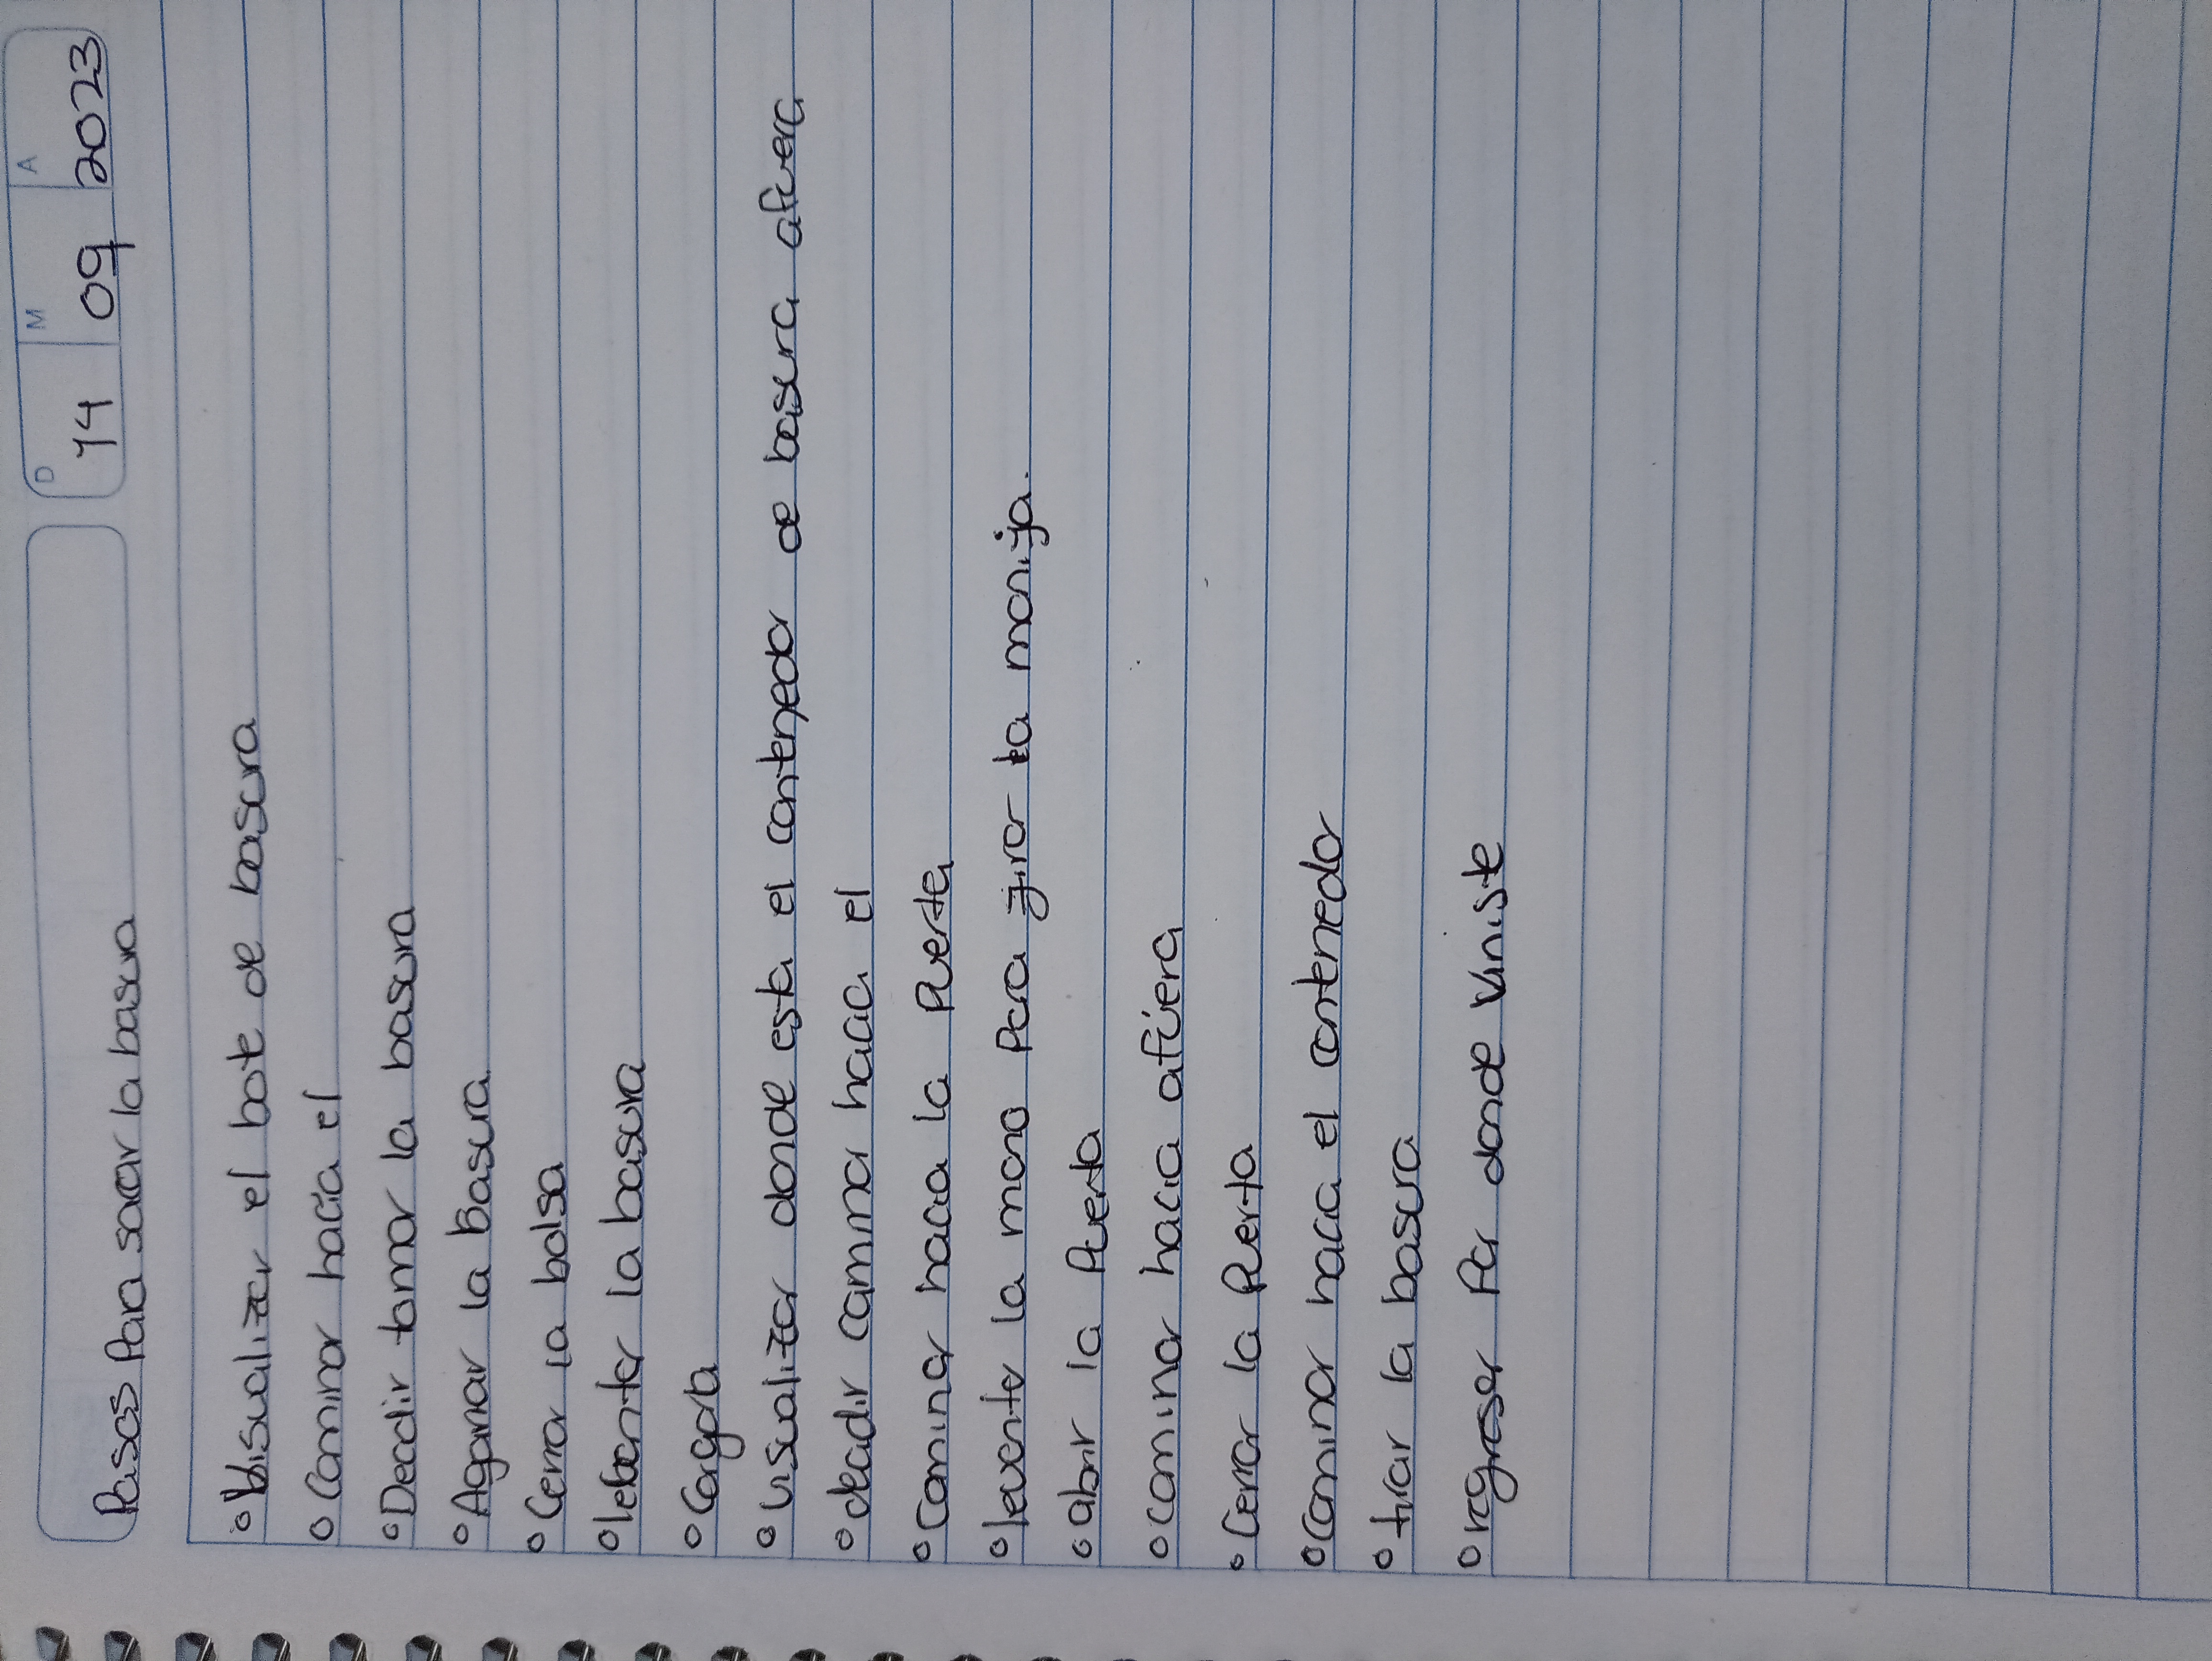 D M A
14 09 2023
Pasos Para sacar la basura
° Visualizar el bote de basura
° Caminar hacia el
° Decidir tomar la basura
° Agarrar la Basura
° Cerrar la bolsa
° lebantar la basura
° Cargarla
° visualizar donde esta el contenedor de basura afuera
° decidir caminar hacia el
° Caminar hacia la Puerta
° levantar la mano Para girar la manija.
° abrir la Puerta
° caminar hacia afúera
° Cerrar la Puerta
° Caminar hacia el contenedor
° tirar la basura
° regresar Por donde viniste